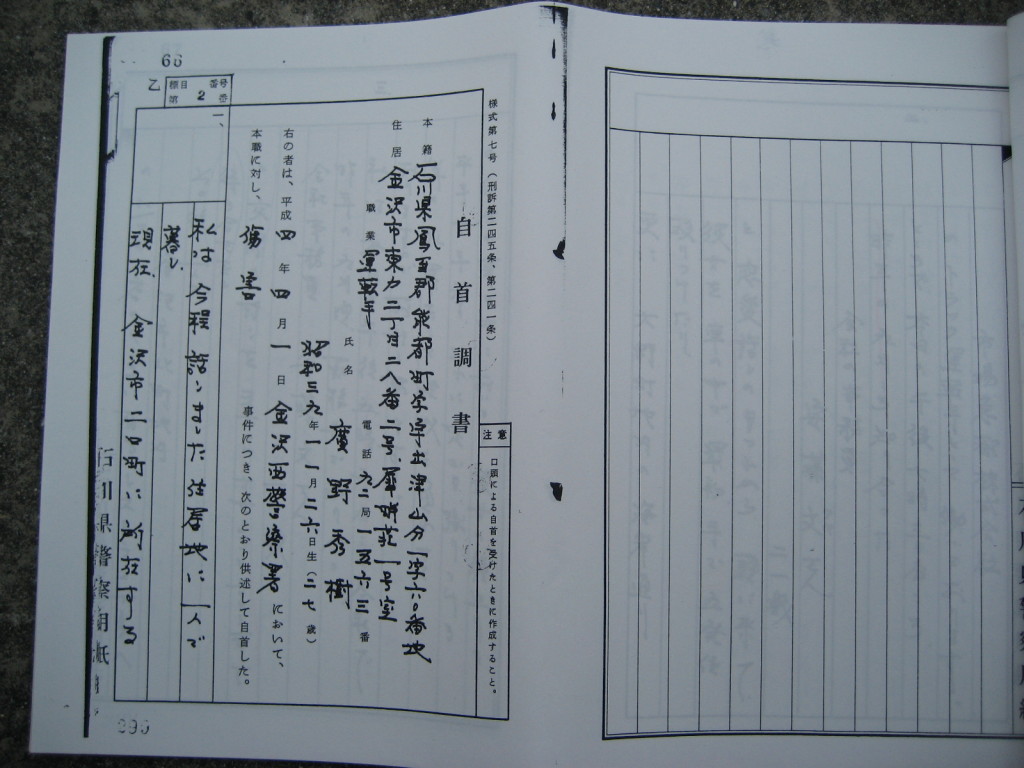 66
乙
標目 番号
第 2 番
様式第七号（刑訴第二四五条、第二四一条）
注意
口頭による自首を受けたときに作成すること。
自首調書
本籍 石川県鳳至郡能都町字宇出津山分
住居 金沢市東力二丁目二八番二号
職業 運転手
電話 九二局一五六三番
氏名 廣野秀樹
昭和三九年一一月二六日生(二七歳)
右の者は、平成四年四月一日金沢西警察署において、
本職に対し、傷害 事件につき、次のとおり供述して自首した。
一、
私は 今程話しました住居地に一人で
暮し
現在、金沢市二口町に所在する
石川県警察用紙